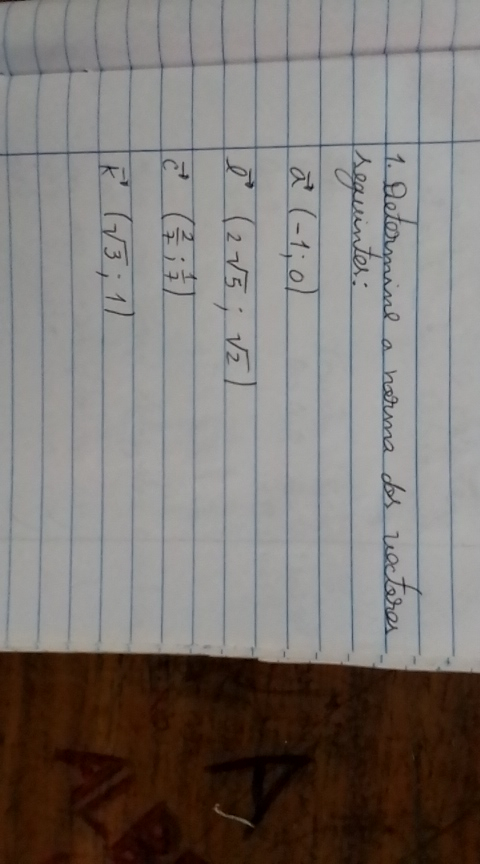 1. Determine a norma dos vectores
seguintes:
a⃗ (-1; 0)
b⃗ (2√5; √2)
c⃗ (2/7; 1/7)
k⃗ (√3; 1)